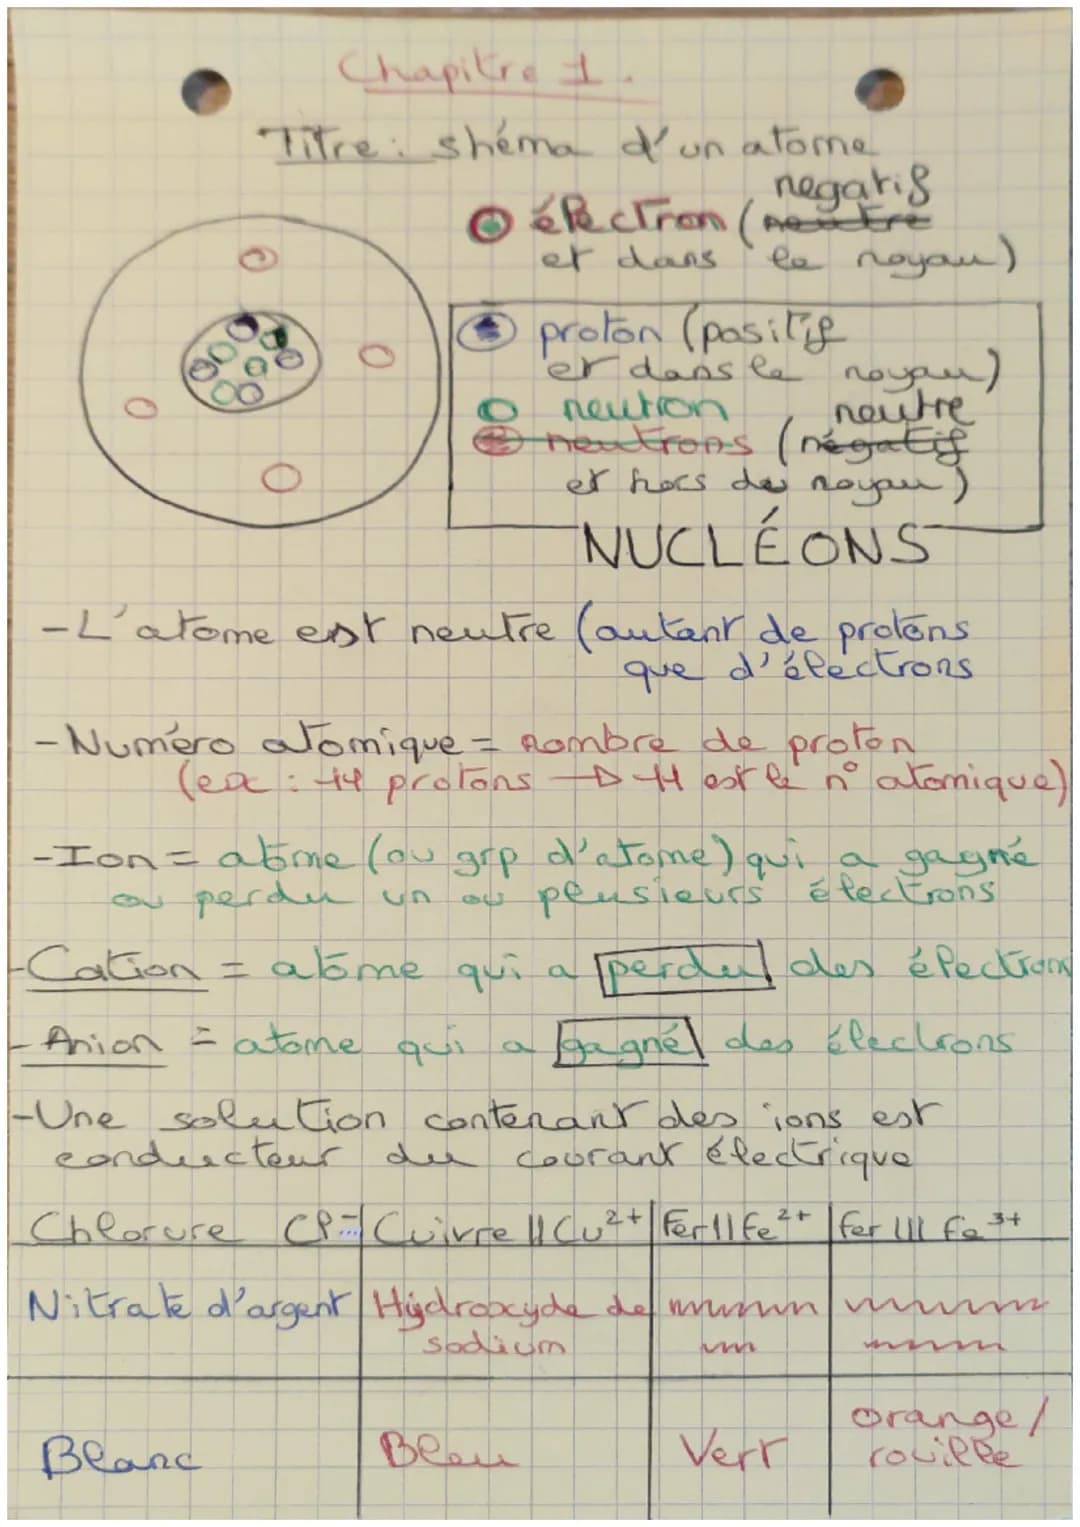 Chapitre 1.
Titre : shéma d'un atome
négatif
électron (neutre
et dans le noyau)
proton (positif
et dans le noyau)
neutron neutre
neutrons (négatif
et hors du noyau)
NUCLÉONS
-L'atome est neutre (autant de protons
que d'électrons
-Numéro atomique = nombre de proton
(ex : 14 protons → 14 est le n° atomique)
-Ion = atome (ou grp d'atome) qui a gagné
ou perdu un ou plusieurs électrons
-Cation = atome qui a perdu des électrons
-Anion = atome qui a gagné des électrons
-Une solution contenant des ions est
conducteur du courant électrique
Chlorure Cl⁻ Cuivre II Cu²⁺ Fer II Fe²⁺ fer III Fe³⁺
Nitrate d'argent Hydroxyde de
sodium
Blanc Bleu Vert orange/
rouille